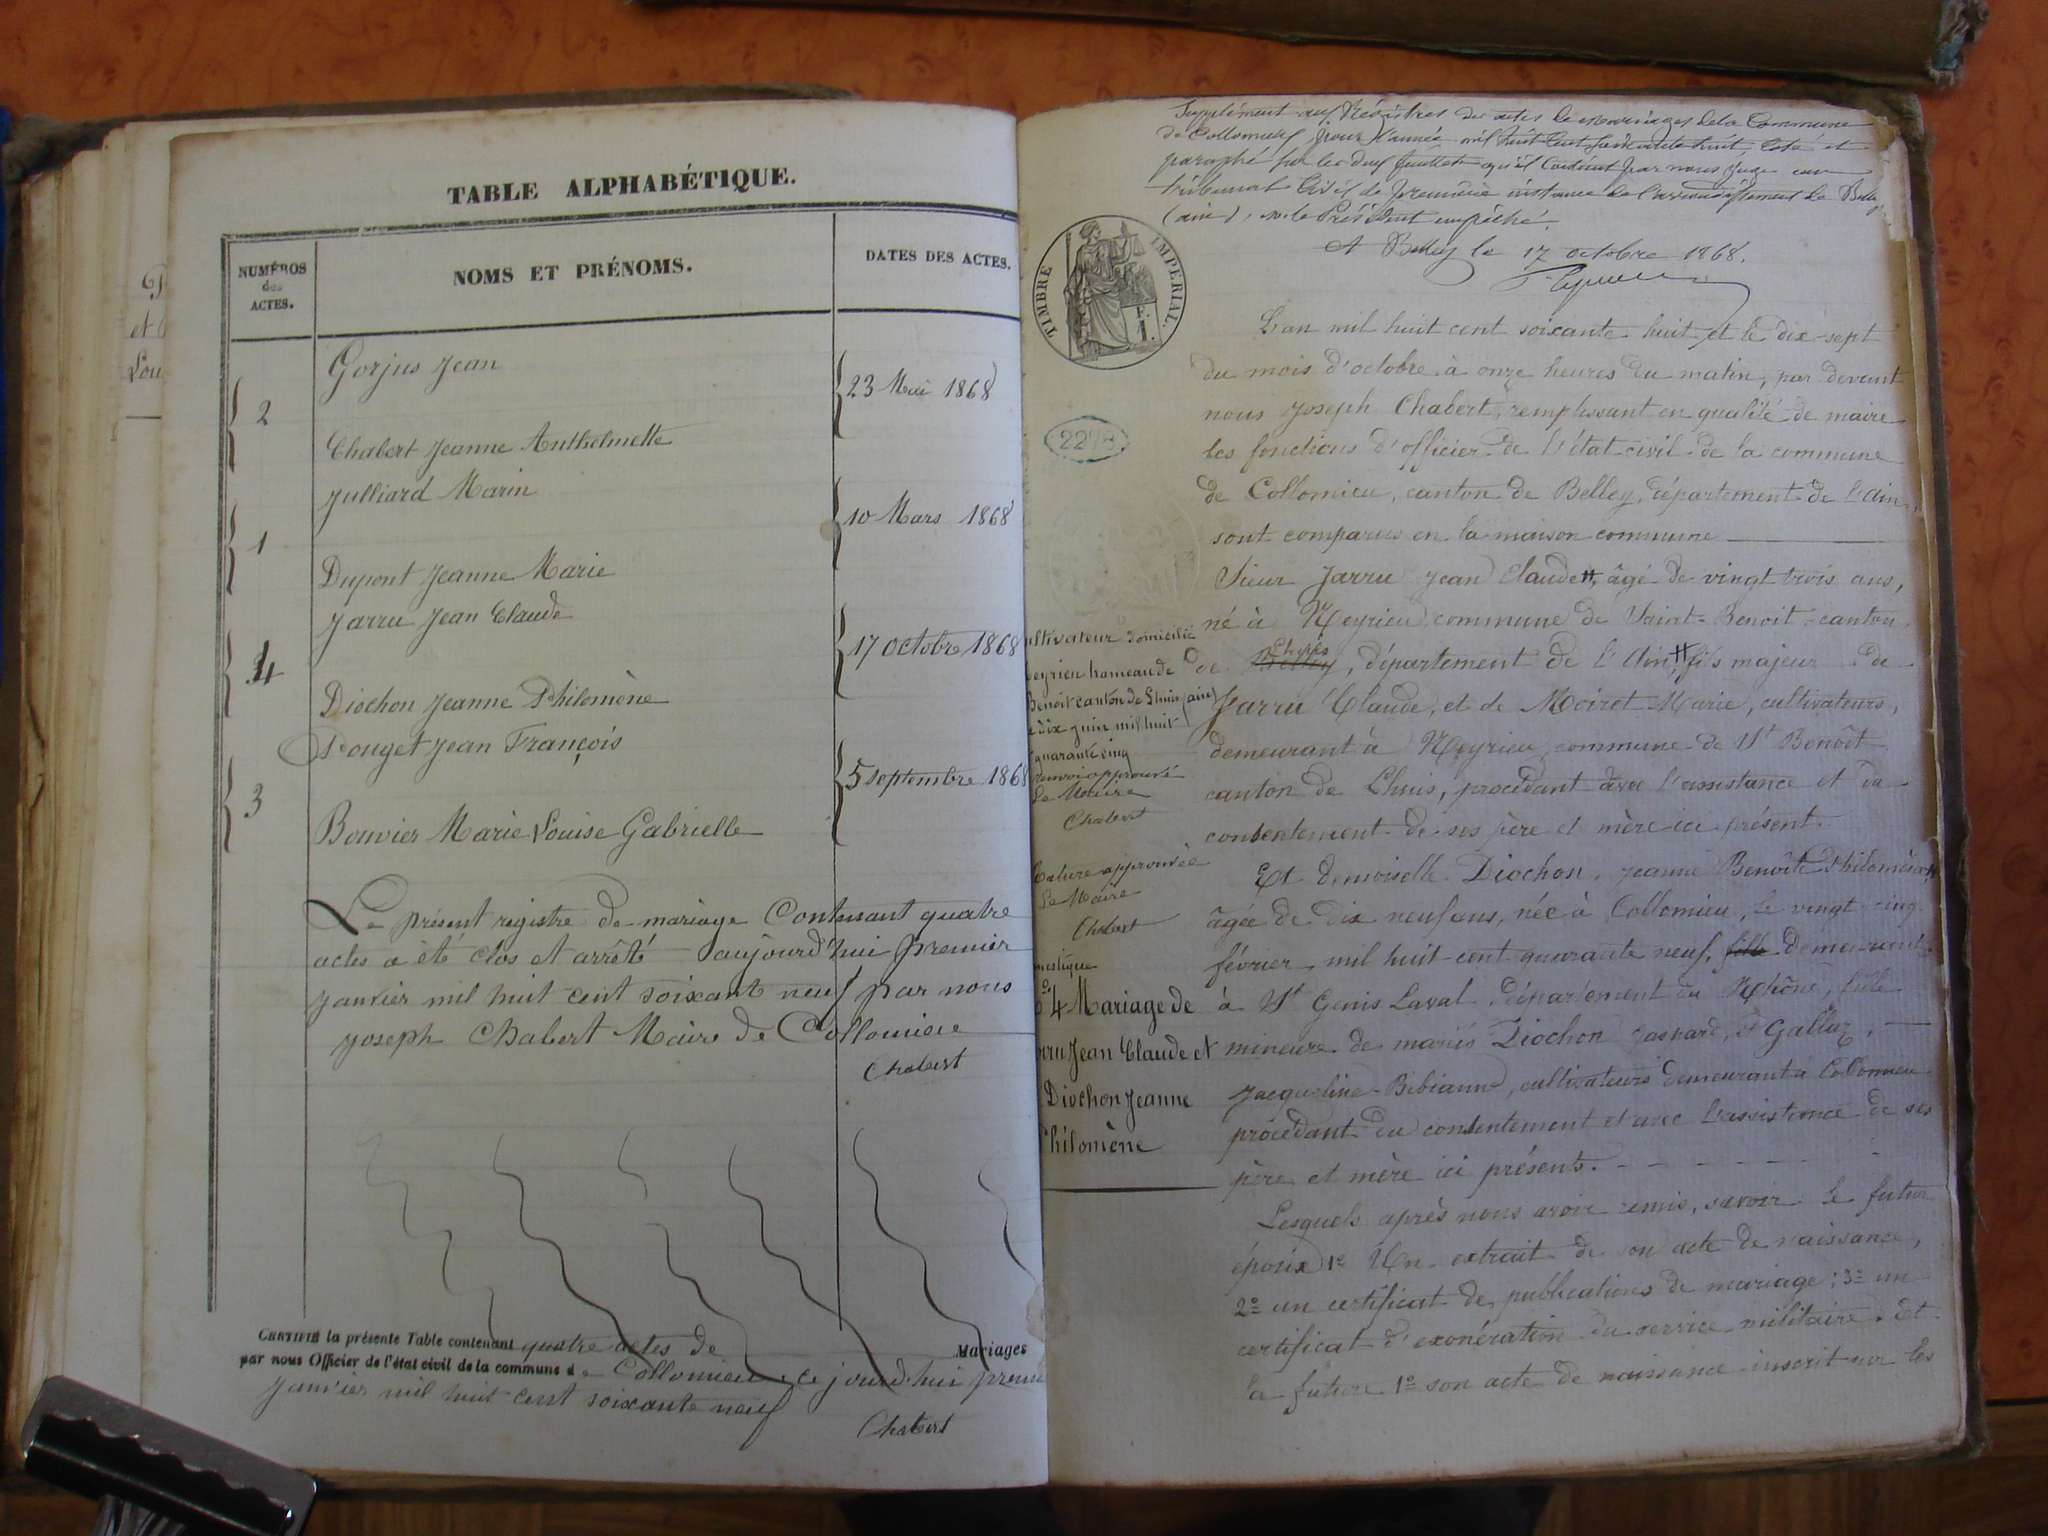 TABLE ALPHABÉTIQUE.
NUMÉROS
des
ACTES.
NOMS ET PRÉNOMS.
DATES DES ACTES.
Gorjus Jean
2
23 Mai 1868
Chabert Jeanne Anthelmette
Julliard Marin
1
10 Mars 1868
Dupont Jeanne Marie
Jarru Jean Claude
4
17 Octobre 1868
Diochon Jeanne Philomène
Pouget Jean François
3
5 septembre 1868
Bouvier Marie Louise Gabrielle
Le présent registre de mariage Contenant quatre
actes a été clos et arrêté aujourd'hui premier
janvier mil huit cent soixant neuf par nous
joseph Chabert Maire de Collomieu
Chabert
CERTIFIÉ la présente Table contenant quatre actes de Mariages
par nous Officier de l'état civil de la commune de Collomieu, ce jourd'hui premi
janvier mil huit cent soixante neuf
Chabert
Supplément aux Régistres des actes de mariages de la Commune
de Collomieu pour l'année mil huit cent soixante huit, coté et
paraphé sur les deux feuillets qu'il contient par nous juge au
tribunal Civil de première instance de l'arrondissement de Belley
(ain), M. le Président empêché.
A Belley le 17 octobre 1868.
TIMBRE IMPÉRIAL.
F.
1.
2273
L'an mil huit cent soixante huit et le dix-sept
du mois d'octobre à onze heures du matin, par devant
nous Joseph Chabert, remplissant en qualité de maire
les fonctions d'officier de l'état civil de la commune
de Collomieu, canton de Belley, département de l'Ain,
sont comparus en la maison commune
Sieur Jarru Jean Claude #, âgé de vingt trois ans,
né à Meyrieu, commune de Saint-Benoit, canton
de Belley Lhuis, département de l'Ain, # fils majeur de
Jarru Claude, et de Moiret Marie, cultivateurs,
demeurant à Meyrieu, commune de St Benoît
canton de Lhuis, procédant avec l'assistance et du
consentement de ses père et mère ici présent.
Et demoiselle Diochon, Jeanne Benoîte Philomène #
âgée de dix neuf ans, née à Collomieu, le vingt cinq
février, mil huit cent quarante neuf, fille demeurant
à St Genis Laval, département du Rhône, fille
mineure de mariés Diochon Gaspard, et Galluz,
Jacqueline-Bibianne, cultivateurs demeurant à Collomieu
procédant du consentement et avec l'assistance de ses
père et mère ici présents.
Lesquels après nous avoir remis, savoir le futur
époux 1º Un extrait de son acte de naissance,
2º un certificat de publications de mariage; 3º un
certificat d'exonération du service militaire. Et
la future 1º son acte de naissance inscrit sur les
ultivateur domicilié
eyrieu hameau de
Benoit canton de Lhuis (ain)
dix juin mil huit
quarante cinq
renvoi approuvé
Le Maire
Chabert
rature approuvée
Le Maire
Chabert
mestique
4 Mariage de
rru Jean Claude et
Diochon Jeanne
Philomène